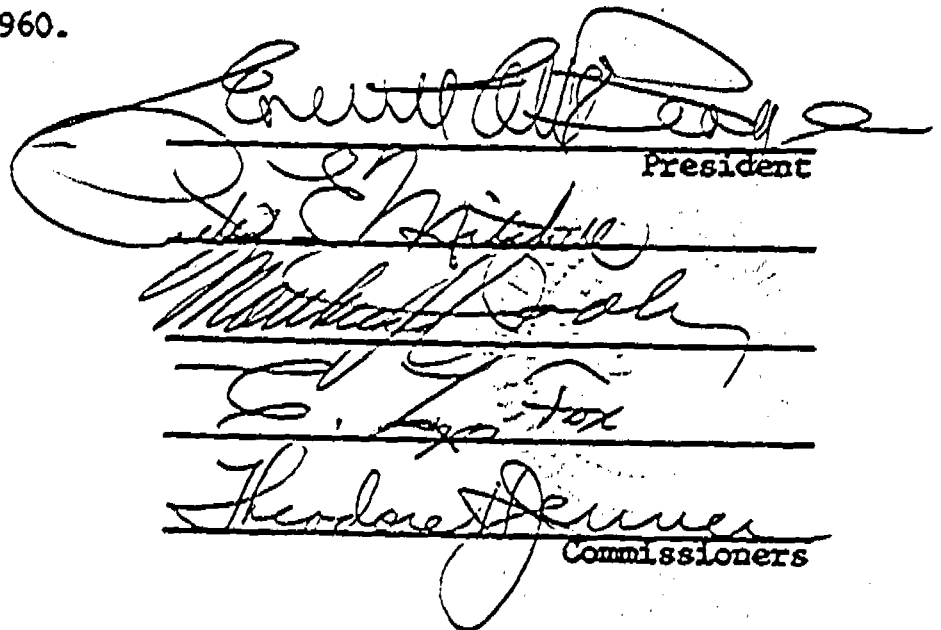 960.
Everett C. McKeage
President
Peter E. Mitchell
Matthew J. Dooley
E. Lyn Fox
Theodore H. Jenner
Commissioners